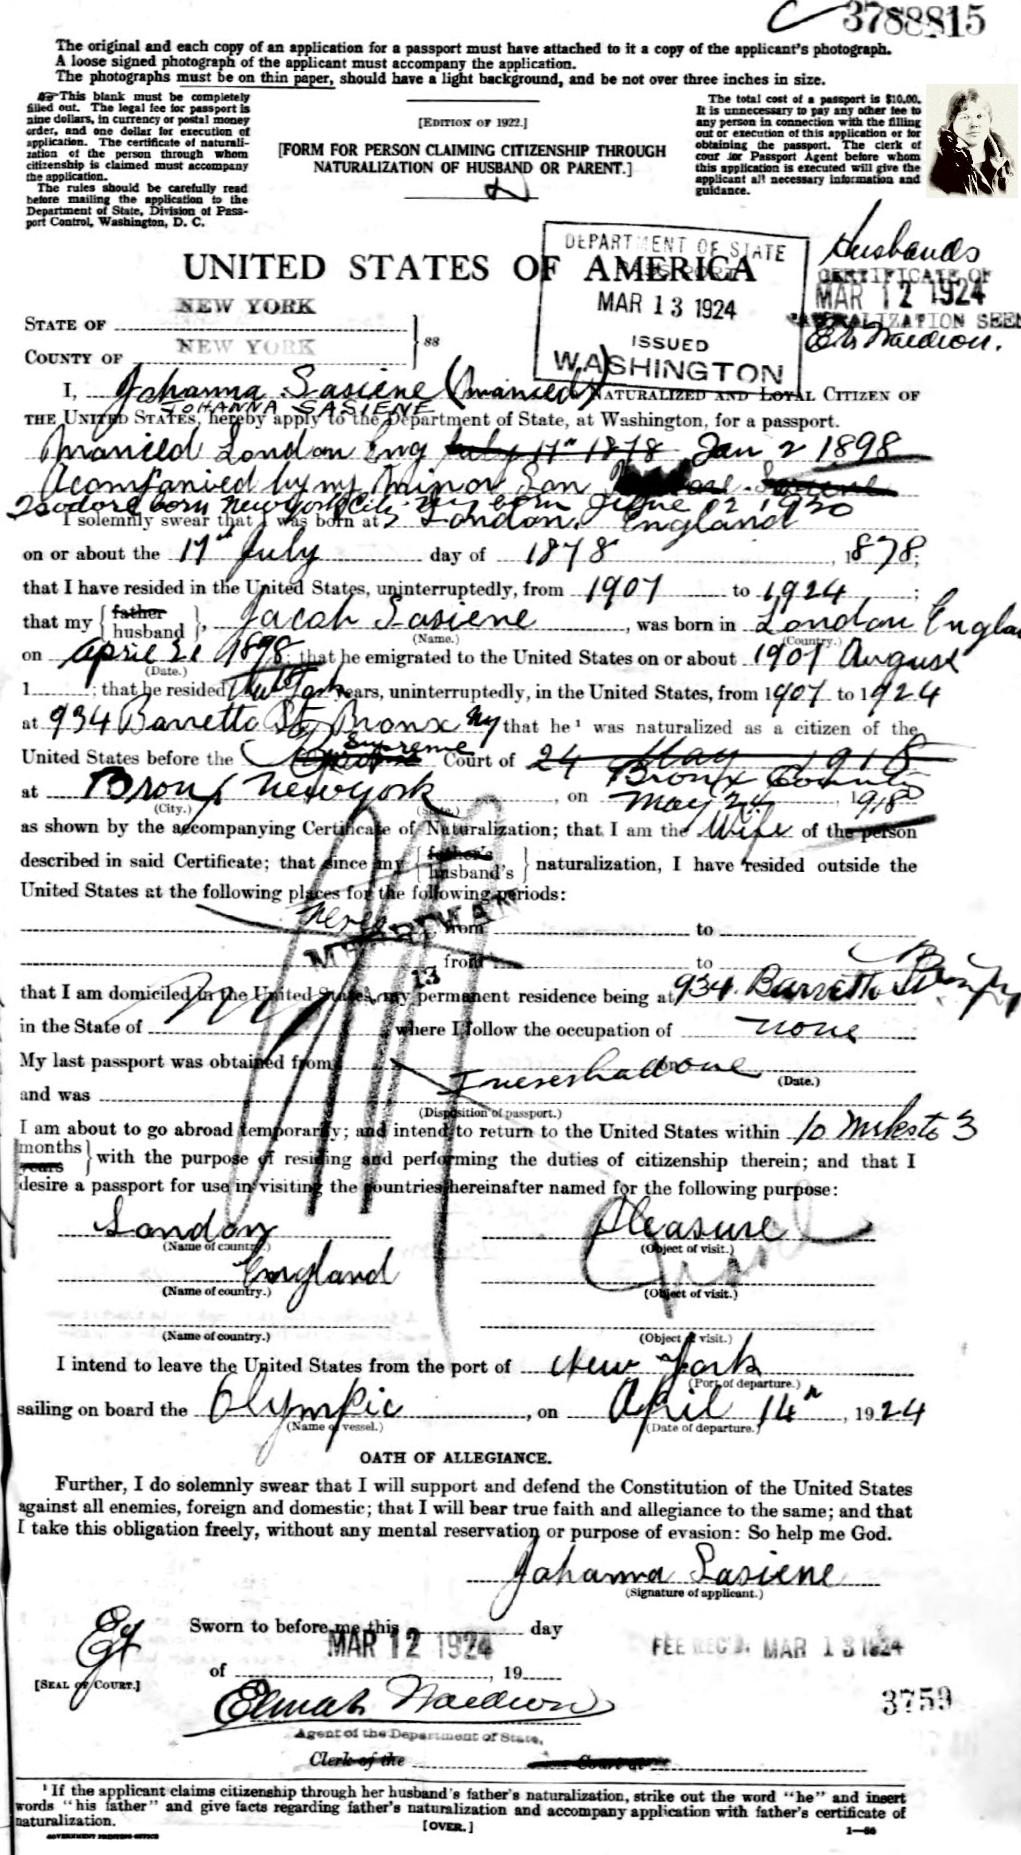 3788815
The original and each copy of an application for a passport must have attached to it a copy of the applicant's photograph.
A loose signed photograph of the applicant must accompany the application.
The photographs must be on thin paper, should have a light background, and be not over three inches in size.
This blank must be completely
filled out. The legal fee for passport is
nine dollars, in currency or postal money
order, and one dollar for execution of
application. The certificate of naturali-
zation of the person through whom
citizenship is claimed must accompany
the application.
The rules should be carefully read
before mailing the application to the
Department of State, Division of Pass-
port Control, Washington, D. C.
[EDITION OF 1922.]
[FORM FOR PERSON CLAIMING CITIZENSHIP THROUGH
NATURALIZATION OF HUSBAND OR PARENT.]
The total cost of a passport is $10.00.
It is unnecessary to pay any other fee to
any person in connection with the filling
out or execution of this application or for
obtaining the passport. The clerk of
cour or Passport Agent before whom
this application is executed will give the
applicant all necessary information and
guidance.
UNITED STATES OF AMERICA
DEPARTMENT OF STATE
MAR 13 1924
ISSUED
WASHINGTON
Husbands
CERTIFICATE OF
MAR 12 1924
NATURALIZATION SEEN
STATE OF NEW YORK
COUNTY OF NEW YORK
ss
I, Johanna Sasiene (married) NATURALIZED AND LOYAL CITIZEN OF
JOHANNA SASIENE
THE UNITED STATES, hereby apply to the Department of State, at Washington, for a passport.
Married London Eng July 17th 1878 Jan 2 1898
Acompanied by my Minor Son
Isodore born New York City June 12 1920
I solemnly swear that I was born at London, England
on or about the 17th July day of 1878, 1878;
that I have resided in the United States, uninterruptedly, from 1907 to 1924;
that my { father husband }, Jacob Sasiene, was born in London Englan
(Name.) (Country.)
on April 21 1898; that he emigrated to the United States on or about 1907 August
(Date.)
1; that he resided years, uninterruptedly, in the United States, from 1907 to 1924
at 934 Barretto St Bronx NY that he¹ was naturalized as a citizen of the
United States before the Supreme Court of 24 May 1918
Bronx County
at Bronx New York, on May 24, 1918
(City.) (State.)
as shown by the accompanying Certificate of Naturalization; that I am the Wife of the person
described in said Certificate; that since my { father's husband's } naturalization, I have resided outside the
United States at the following places for the following periods:
from to
from to
13
that I am domiciled in the United States, my permanent residence being at 934 Barretto St
in the State of where I follow the occupation of none
My last passport was obtained from I never had one
(Date.)
and was
(Disposition of passport.)
I am about to go abroad temporarily; and intend to return to the United States within 10 weeks to 3
{ months years } with the purpose of residing and performing the duties of citizenship therein; and that I
desire a passport for use in visiting the countries hereinafter named for the following purpose:
London Pleasure
(Name of country.) (Object of visit.)
England
(Name of country.) (Object of visit.)
(Name of country.) (Object of visit.)
I intend to leave the United States from the port of New York
(Port of departure.)
sailing on board the Olympic, on April 14th, 1924
(Name of vessel.) (Date of departure.)
OATH OF ALLEGIANCE.
Further, I do solemnly swear that I will support and defend the Constitution of the United States
against all enemies, foreign and domestic; that I will bear true faith and allegiance to the same; and that
I take this obligation freely, without any mental reservation or purpose of evasion: So help me God.
Johanna Sasiene
(Signature of applicant.)
Sworn to before me this day
MAR 12 1924
FEE REC'D. MAR 13 1924
of , 19
[SEAL OF COURT.]
3759
Agent of the Department of State.
Clerk of the Court at
¹ If the applicant claims citizenship through her husband's father's naturalization, strike out the word "he" and insert
words "his father" and give facts regarding father's naturalization and accompany application with father's certificate of
naturalization.
[OVER.]
GOVERNMENT PRINTING OFFICE